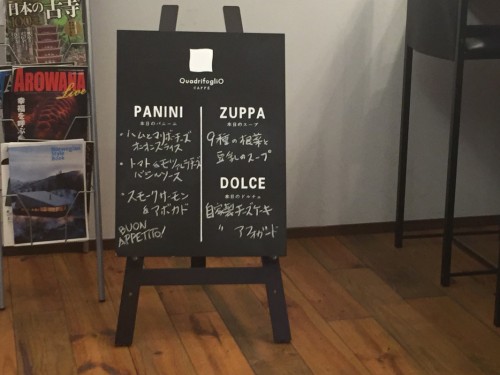 日本の古寺
AROWANA
Live
幸福を呼ぶ
QuadrifogliO
CAFFE
PANINI
本日のパニーニ
・ハムとマリボーチーズ
オニオンスライス
・トマト&モッツァレラチーズ
バジルソース
・スモークサーモン
&アボカド
BUON
APPETITO!
ZUPPA
本日のスープ
9種の根菜と
豆乳のスープ
DOLCE
本日のドルチェ
自家製チーズケーキ
〃 アフォガード